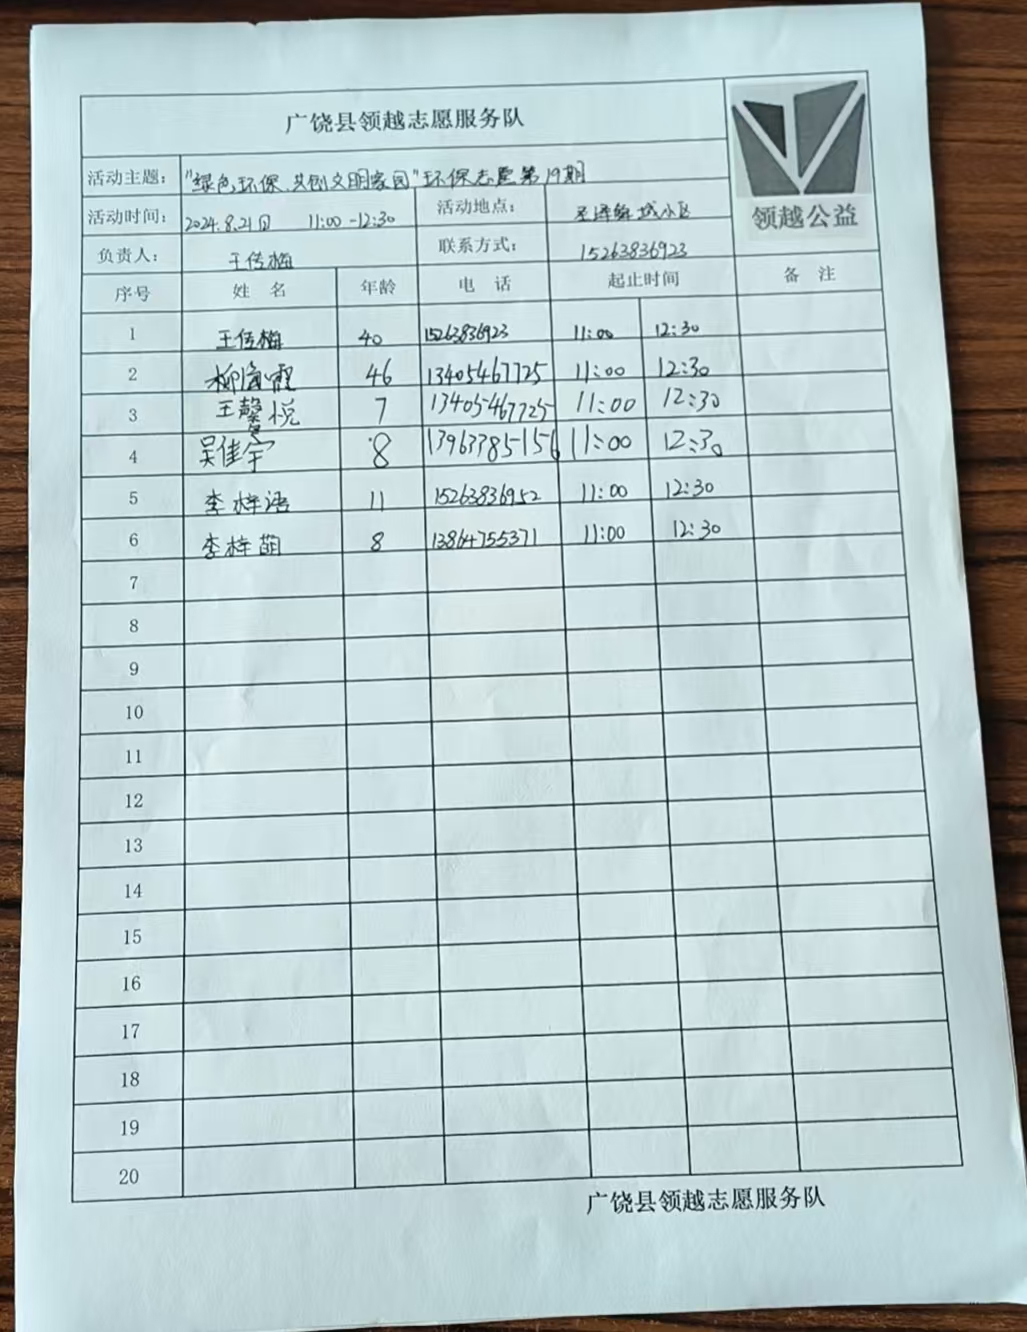 广饶县领越志愿服务队
活动主题： "绿色环保.共创文明家园"环保志愿第19期
活动时间： 2024.8.21日 11:00-12:30 活动地点： 城小区
负责人： 王传梅 联系方式： 15263836923
领越公益
序号 姓 名 年龄 电 话 起止时间 备 注
1 王传梅 40 15263836923 11:00 12:30
2 柳海霞 46 13405467725 11:00 12:30
3 王馨悦 7 13405467725 11:00 12:30
4 吴佳宇 8 13963785156 11:00 12:30
5 李梓语 11 15263836952 11:00 12:30
6 李梓萌 8 13864755371 11:00 12:30
7
8
9
10
11
12
13
14
15
16
17
18
19
20
广饶县领越志愿服务队